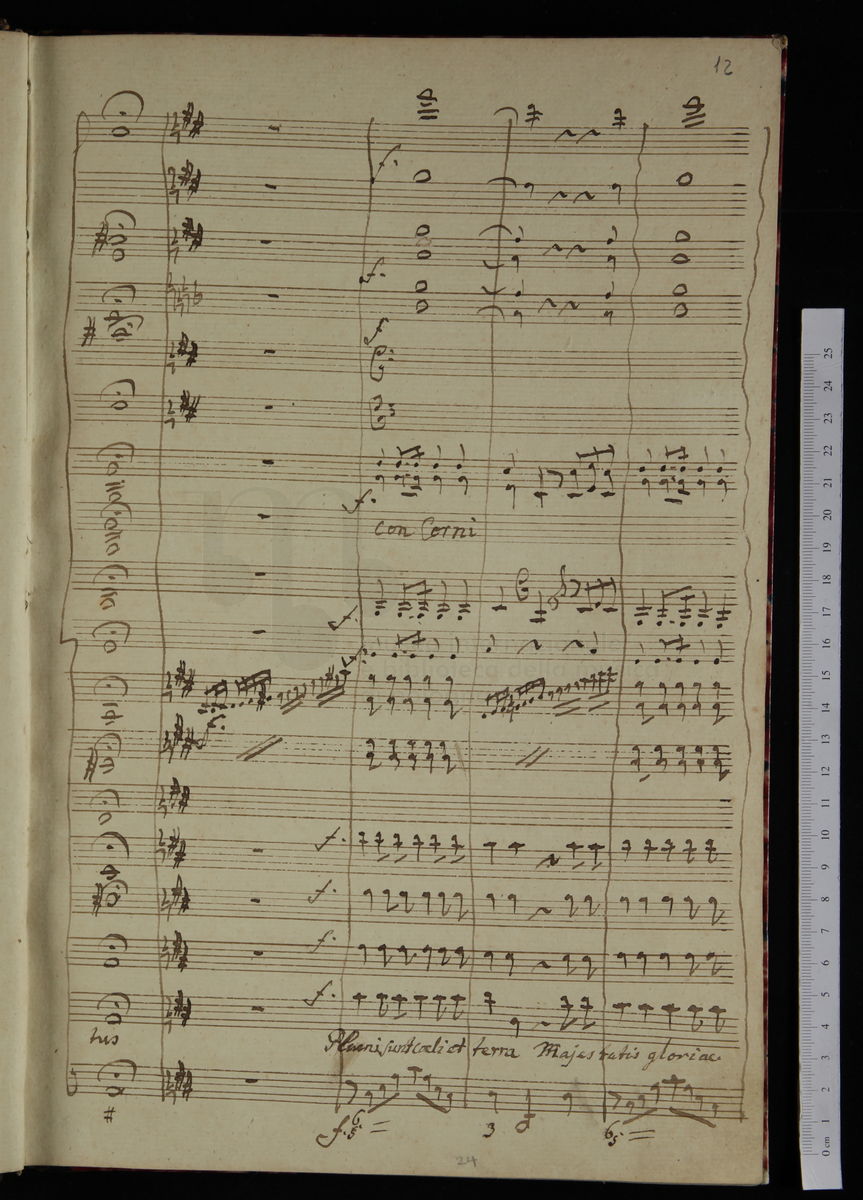 12
f.
f.
f
f.
con Corni
f.
f.
f.
f.
f.
f.
f.
tus
Pleni sunt coeli et terra Majestatis gloriae.
f. 6 5 3 6 5
24
25
24
23
22
21
20
19
18
17
16
15
14
13
12
11
10
9
8
7
6
5
4
3
2
1
0 cm